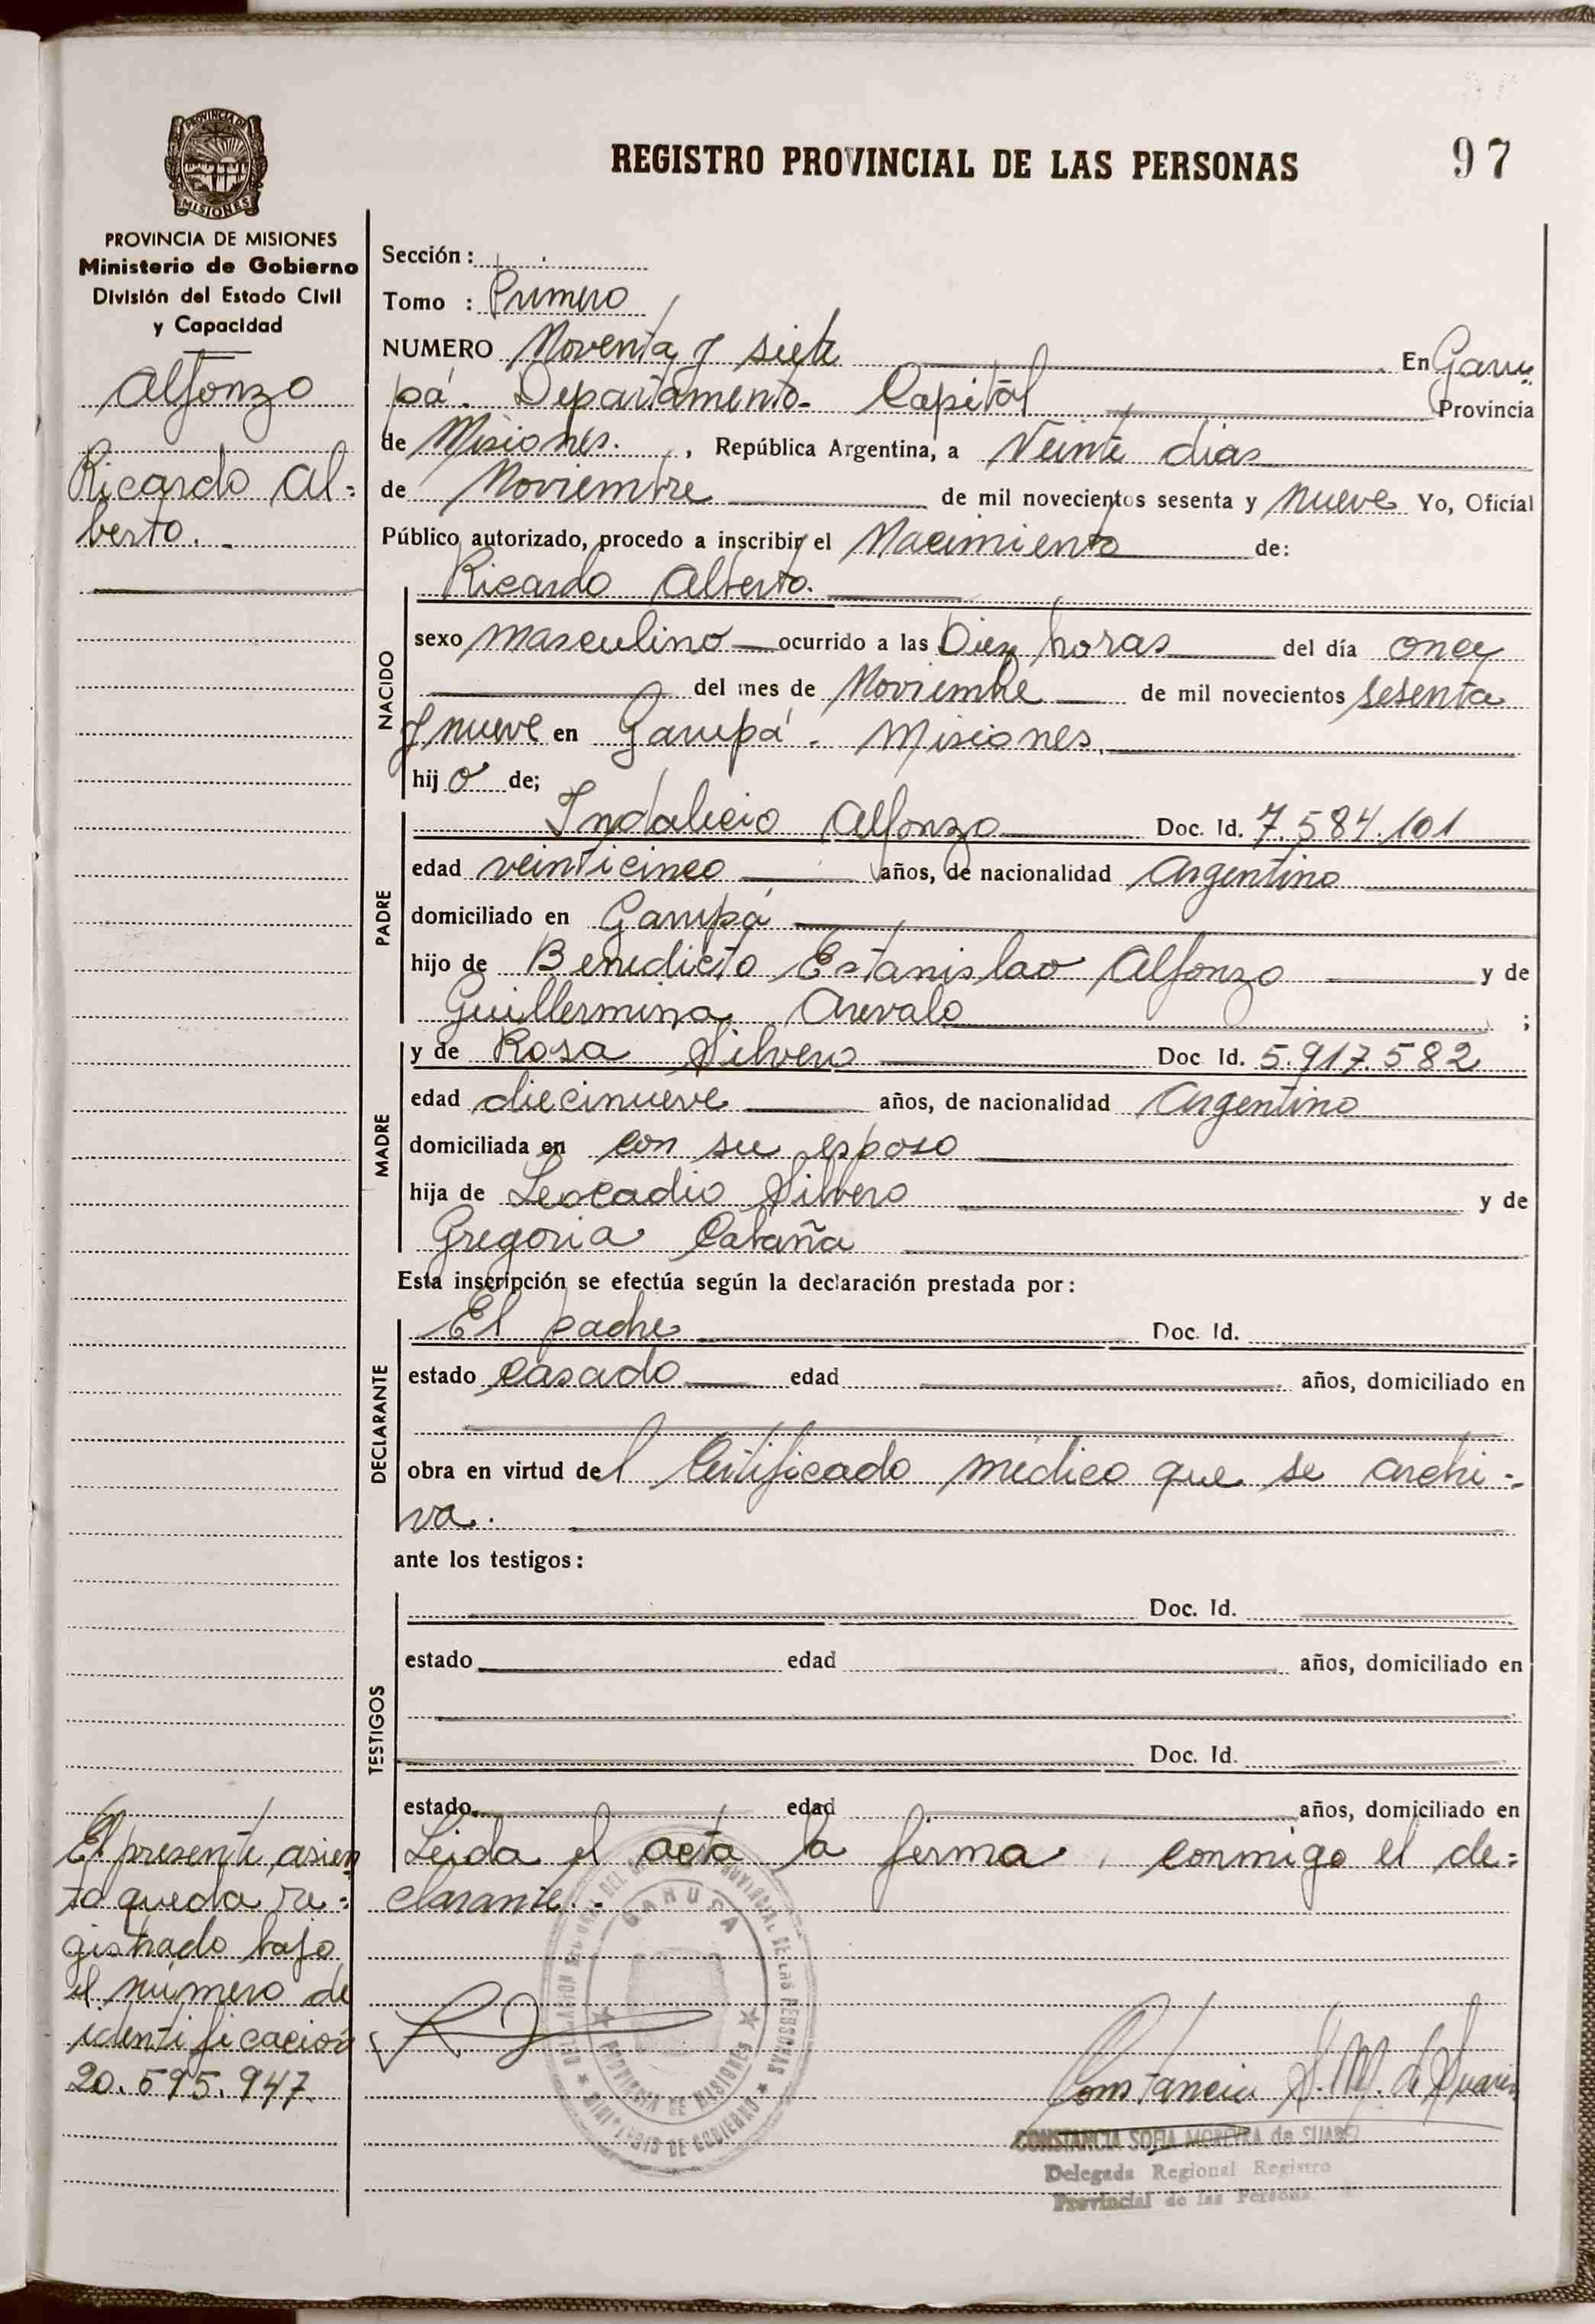 PROVINCIA DE
MISIONES
PROVINCIA DE MISIONES
Ministerio de Gobierno
División del Estado Civil
y Capacidad
REGISTRO PROVINCIAL DE LAS PERSONAS
97
Alfonzo
Ricardo Al=
berto.
Sección:
Tomo : Primero
NUMERO Noventa y siete En Garu
pá. Departamento Capital Provincia
de Misiones. , República Argentina, a Veinte dias
de Noviembre de mil novecientos sesenta y nueve Yo, Oficial
Público autorizado, procedo a inscribir el Nacimiento de:
Ricardo Alberto.
NACIDO
sexo masculino ocurrido a las Diez horas del día once
del mes de Noviembre de mil novecientos sesenta
y nueve en Garupá. Misiones.
hij o de;
PADRE
Indalecio Alfonzo Doc. Id. 7.584.101
edad veinticinco años, de nacionalidad Argentino
domiciliado en Garupá
hijo de Benedicto Estanislao Alfonzo y de
Guillermina Arevalo ;
MADRE
y de Rosa Silvero Doc Id. 5.917.582
edad diecinueve años, de nacionalidad Argentino
domiciliada en con su esposo
hija de Leocadio Silvero y de
Gregoria Cabaña
Esta inscripción se efectúa según la declaración prestada por:
DECLARANTE
El padre Doc. Id.
estado casado edad años, domiciliado en
obra en virtud del Certificado médico que se archi=
va.
ante los testigos:
TESTIGOS
Doc. Id.
estado edad años, domiciliado en
Doc. Id.
estado edad años, domiciliado en
Leida el acta la firma conmigo el de=
clarante.
El presente asien
to queda re=
gistrado bajo
el número de
identificación
20.595.947
GARUPA
PROVINCIA DE MISIONES
MINISTERIO DE GOBIERNO
Constancia S. M. de Suarez
CONSTANCIA SOFIA MOREYRA de SUAREZ
Delegada Regional Registro
Provincial de las Persona